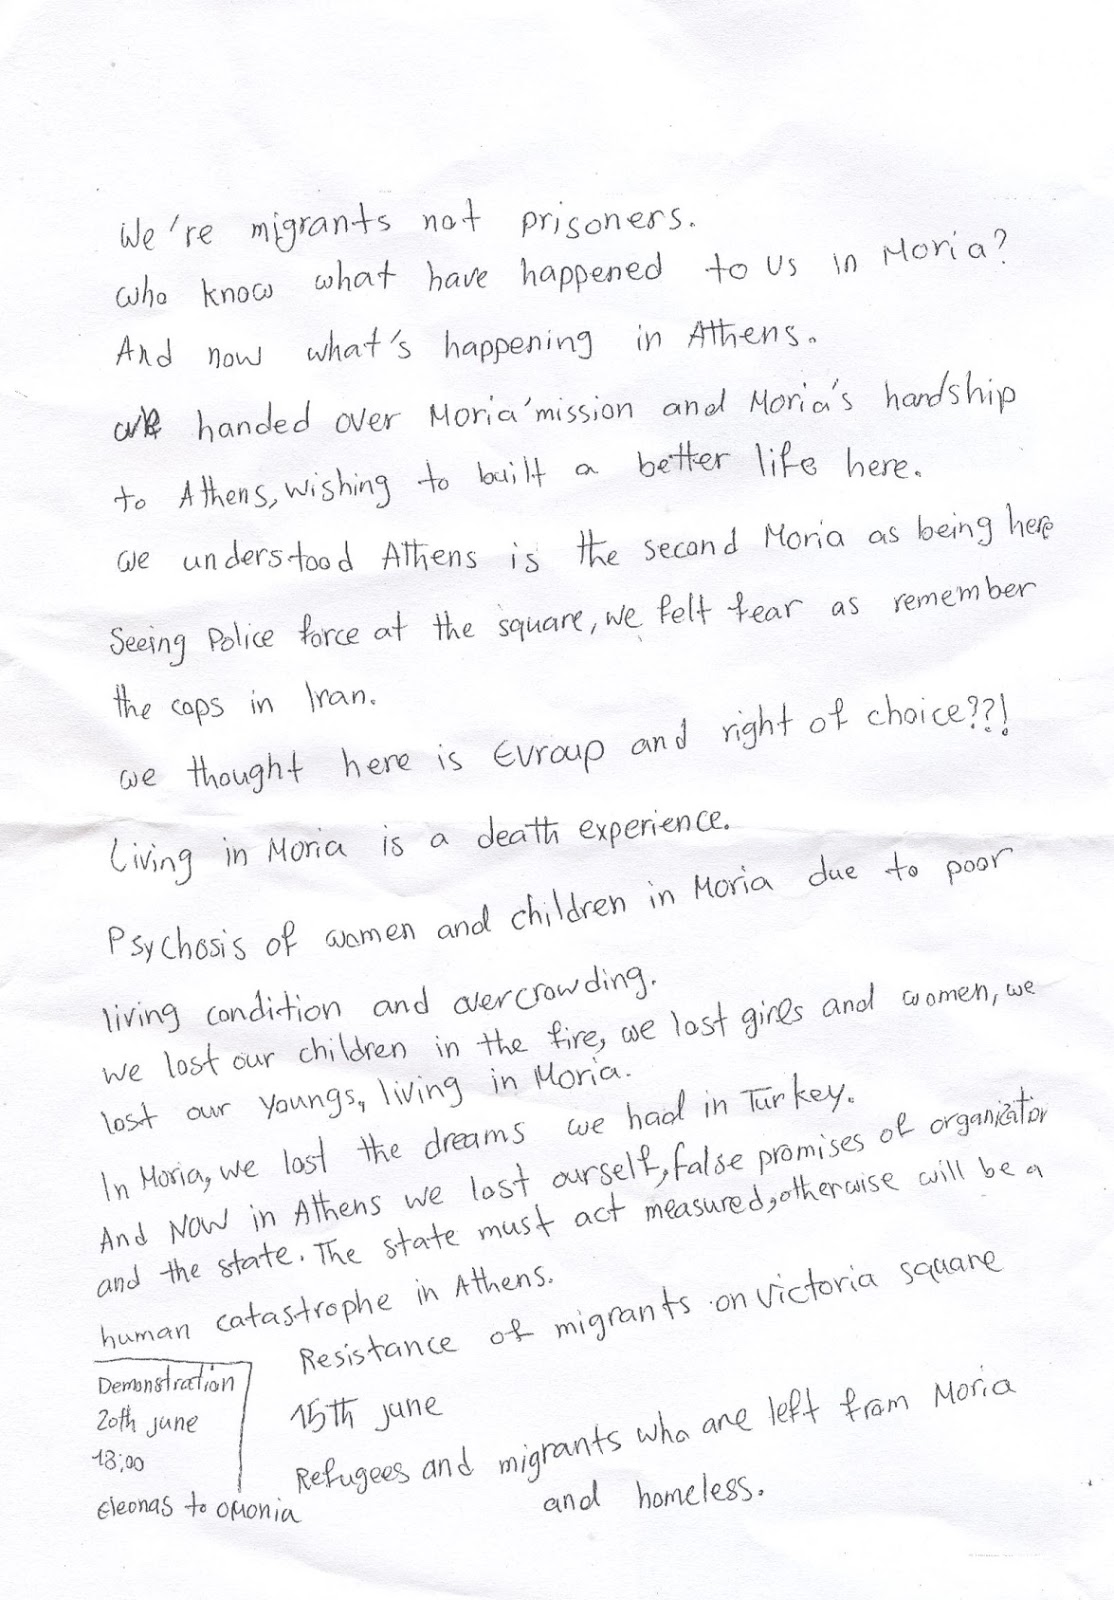 We're migrants not prisoners.
who know what have happened to us in Moria?
And now what's happening in Athens.
we handed over Moria'mission and Moria's hardship
to Athens, wishing to built a better life here.
we understood Athens is the second Moria as being here
Seeing Police force at the square, we felt fear as remember
the cops in Iran.
we thought here is Evroup and right of choice??!
Living in Moria is a death experience.
Psychosis of women and children in Moria due to poor
living condition and overcrowding.
we lost our children in the fire, we lost girls and women, we
lost our youngs, living in Moria.
In Moria, we lost the dreams we had in Turkey.
And NOW in Athens we lost ourself, false promises of organization
and the state. The state must act measured, otherwise will be a
human catastrophe in Athens.
Resistance of migrants on victoria square
15th june
Refugees and migrants who are left from Moria
and homeless.
Demonstration
20th june
18:00
Eleonas to OMonia